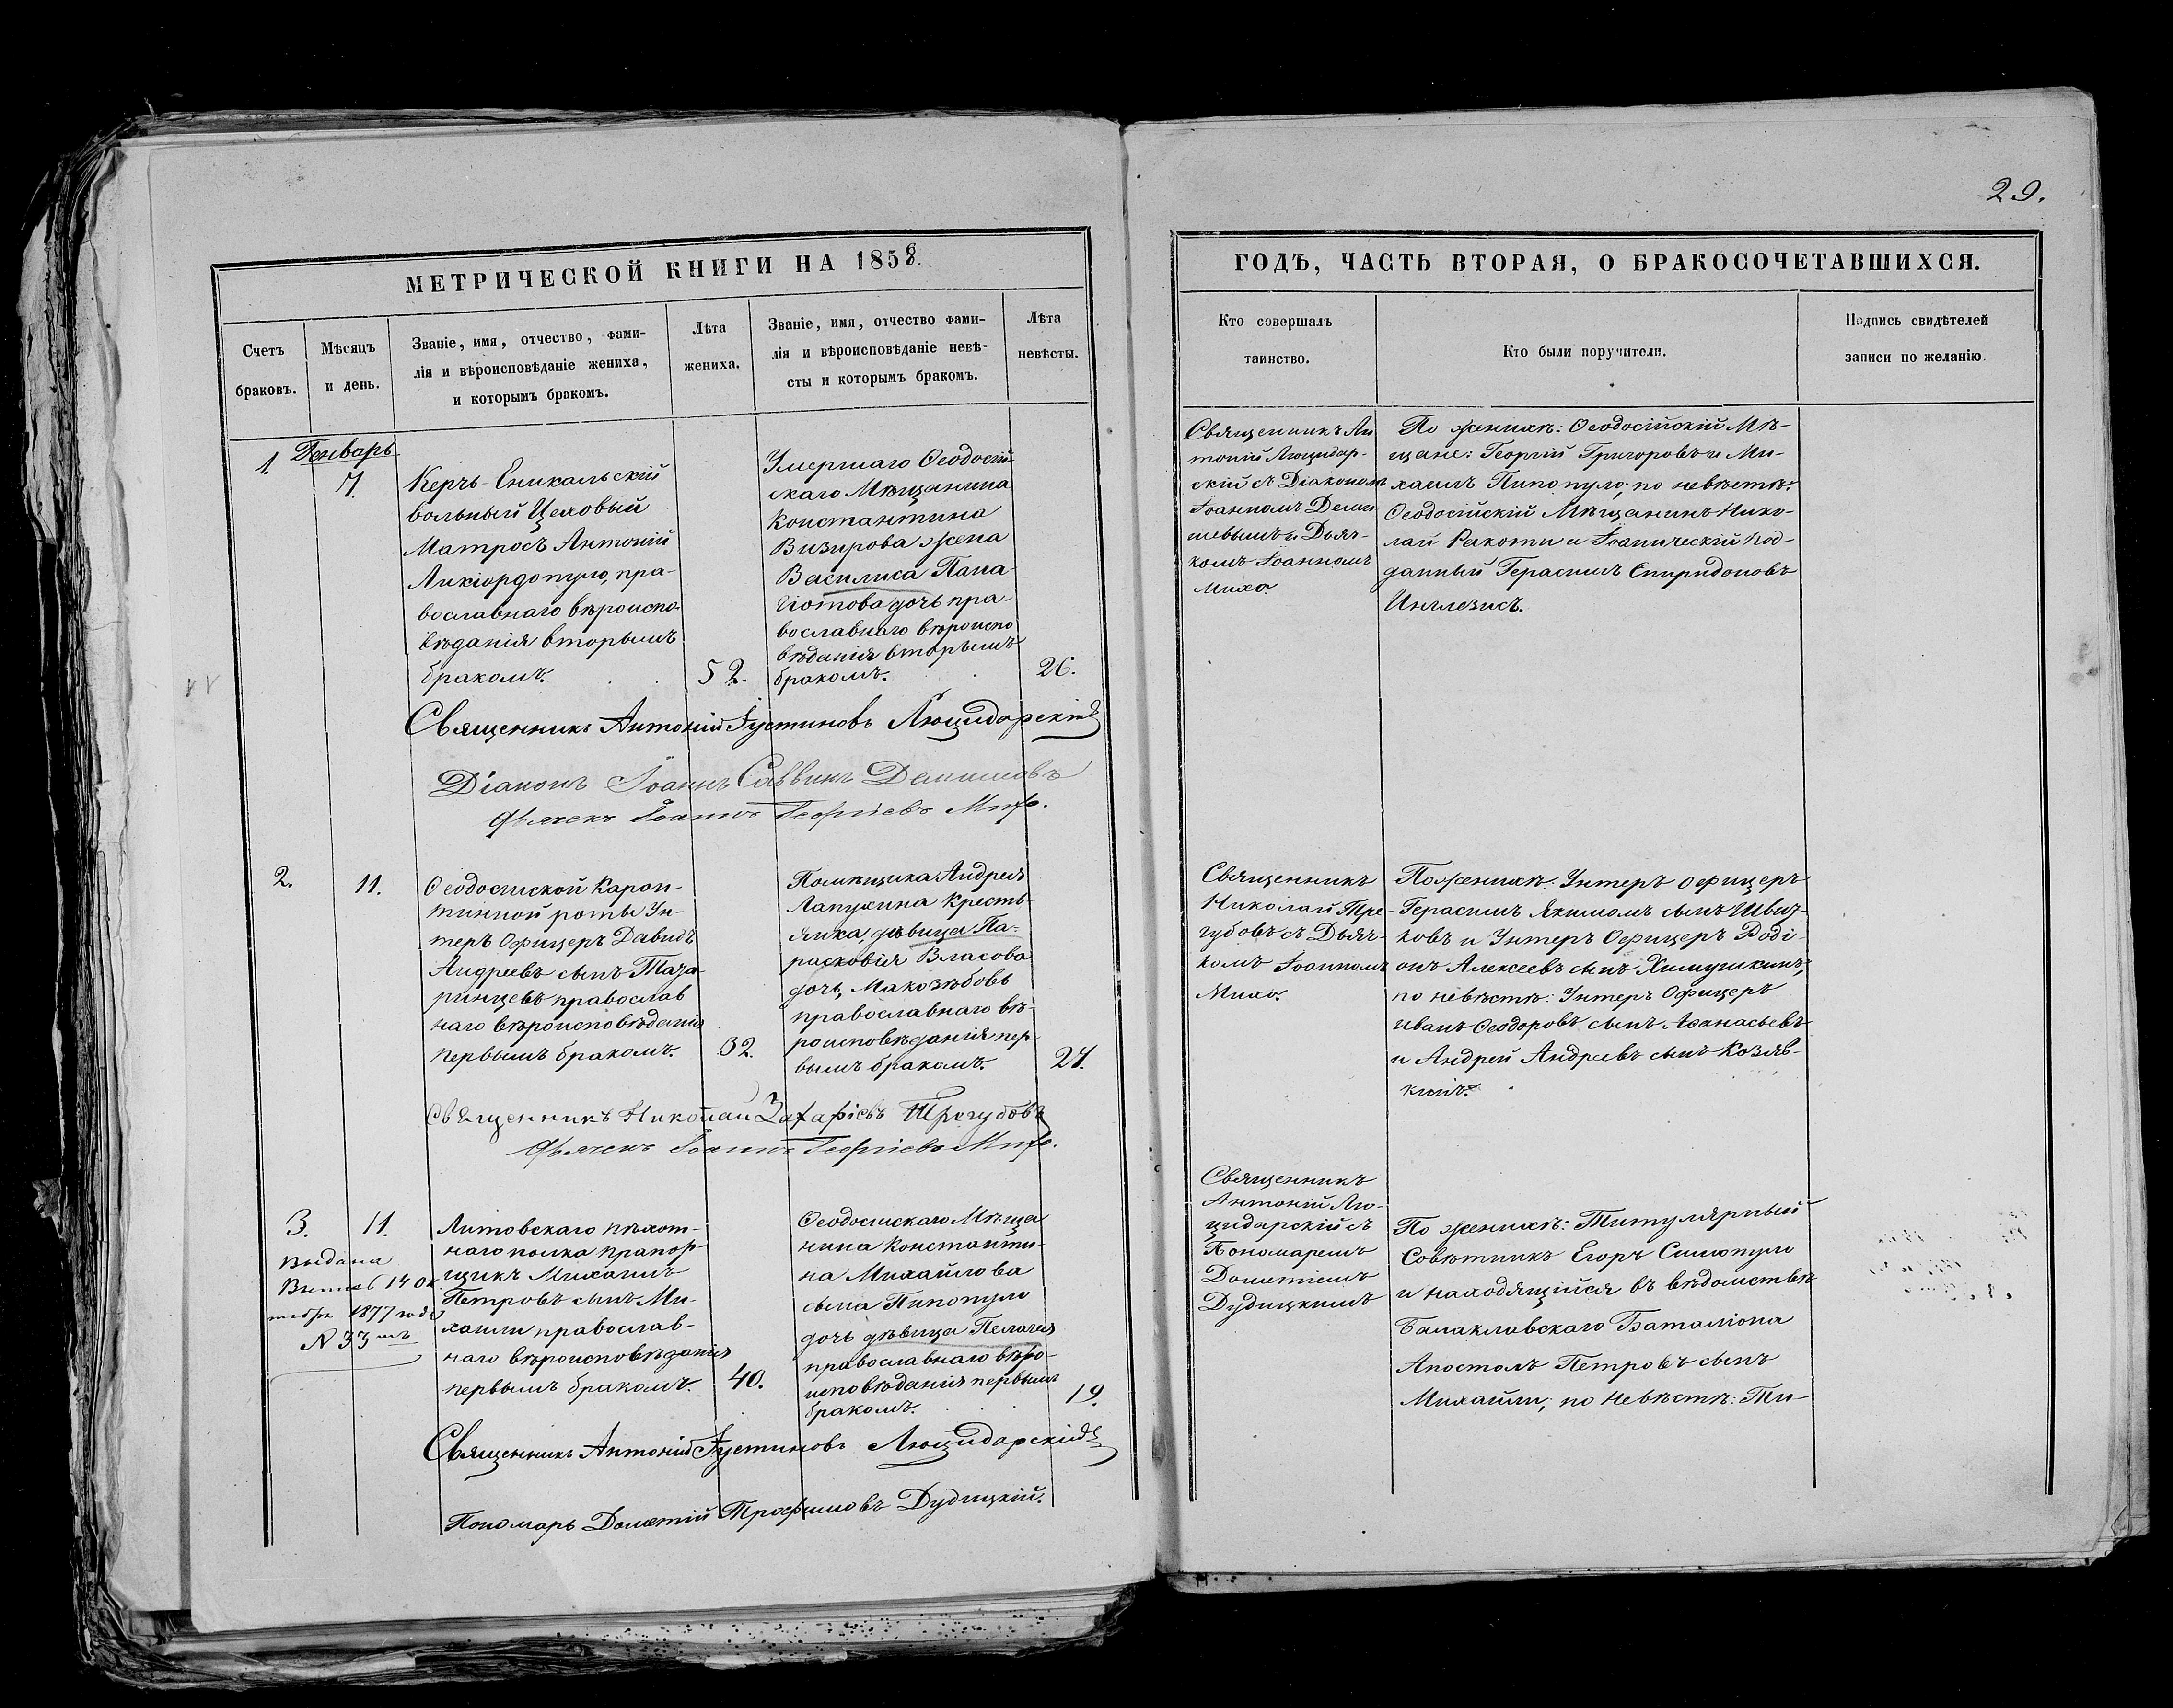 29.
МЕТРИЧЕСКОЙ КНИГИ НА 1858.
Счетъ
браковъ.
Мѣсяцъ
и день.
Званіе, имя, отчество, фами-
лія и вѣроисповѣданіе жениха,
и которымъ бракомъ.
Лѣта
жениха.
Званіе, имя, отчество фами-
лія и вѣроисповѣданіе невѣ-
сты и которымъ бракомъ.
Лѣта
невѣсты.
1
Генварь
7.
Керчь-Еникальскій
вольный Цеховый
Матросъ Антоній
Ликіордопуло, пра-
вославнаго вѣроиспо-
вѣданія вторымъ
бракомъ.
52.
Умершаго Ѳеодосій-
скаго Мѣщанина
Константина
Визирова жена
Василиса Пана-
гіотова дочь пра-
вославнаго вѣроиспо
вѣданія вторымъ
бракомъ.
26.
Священникъ Антоній Іустиновъ Люцидарскій
Діаконъ Іоаннъ Саввинъ Демишевъ
Дьячекъ Іоаннъ Георгіевъ Михо.
2.
11.
Ѳеодосійской Каран-
тинной роты Ун-
теръ Офицеръ Давидъ
Андреевъ сынъ Тага-
ринцевъ православ
наго вѣроисповѣданія
первымъ бракомъ.
32.
Помѣщика Андрея
Лапухина Кресть-
янка, дѣвица Па-
расковія Власова
дочь, Макозѣбовъ
православнаго вѣ-
роисповѣданія пер-
вымъ бракомъ.
27.
Священникъ Николай Захаріевъ Трегубовъ
Дьячекъ Іоаннъ Георгіевъ Михо.
3.
11.
Выдана
14 Ок
тября 1877 года
N 33
Литовскаго пѣхот-
наго полка прапор-
щикъ Михаилъ
Петровъ сынъ Ми-
хаили православ-
наго вѣроисповѣданія
первымъ бракомъ.
40.
Ѳеодосійскаго Мѣща
нина Константи-
на Михайлова
сына Пипопуло
дочь дѣвица Пелагія
православнаго вѣро-
исповѣданія первымъ
бракомъ.
19.
Священникъ Антоній Іустиновъ Люцидарскій
Пономарь Дометій Трофимовъ Дудицкій.
ГОДЪ, ЧАСТЬ ВТОРАЯ, О БРАКОСОЧЕТАВШИХСЯ.
Кто совершалъ
таинство.
Кто были поручители.
Подпись свидѣтелей
записи по желанію.
Священникъ Ан
тоній Люцидар-
скій съ Діакономъ
Іоанномъ Деми
шевымъ и Дьяч-
комъ Іоанномъ
Михо.
По женихѣ: Ѳеодосійскій Мѣ-
щане: Георгій Григоровъ и Ми-
хаилъ Пипопуло; по невѣстѣ:
Ѳеодосійскій Мѣщанинъ Нико-
лай Ракоти и Іоаническій под-
данный Герасимъ Спиридоновъ
Инглезисъ.
Священникъ
Николай Тре-
губовъ съ Дьяч-
комъ Іоанномъ
Михо.
По женихѣ: Унтеръ Офицеръ
Герасимъ Якимовъ сынъ
ковъ и Унтеръ Офицеръ Родi-
онъ Алексеевъ сынъ Химушкинъ;
по невѣстѣ: Унтеръ Офицеръ
Иванъ Ѳеодоровъ сынъ Аѳанасьевъ
и Андрей Андреевъ сынъ Козяв-
кинъ.
Священникъ
Антоній Лю-
цидарскій съ
Пономаремъ
Дометіемъ
Дудицкимъ
По женихѣ: Титулярный
Совѣтникъ Егоръ Симопуло
и находящійся въ вѣдомствѣ
Балаклавскаго Баталіона
Апостолъ Петровъ сынъ
Михайли; по Невѣстѣ: Ти-